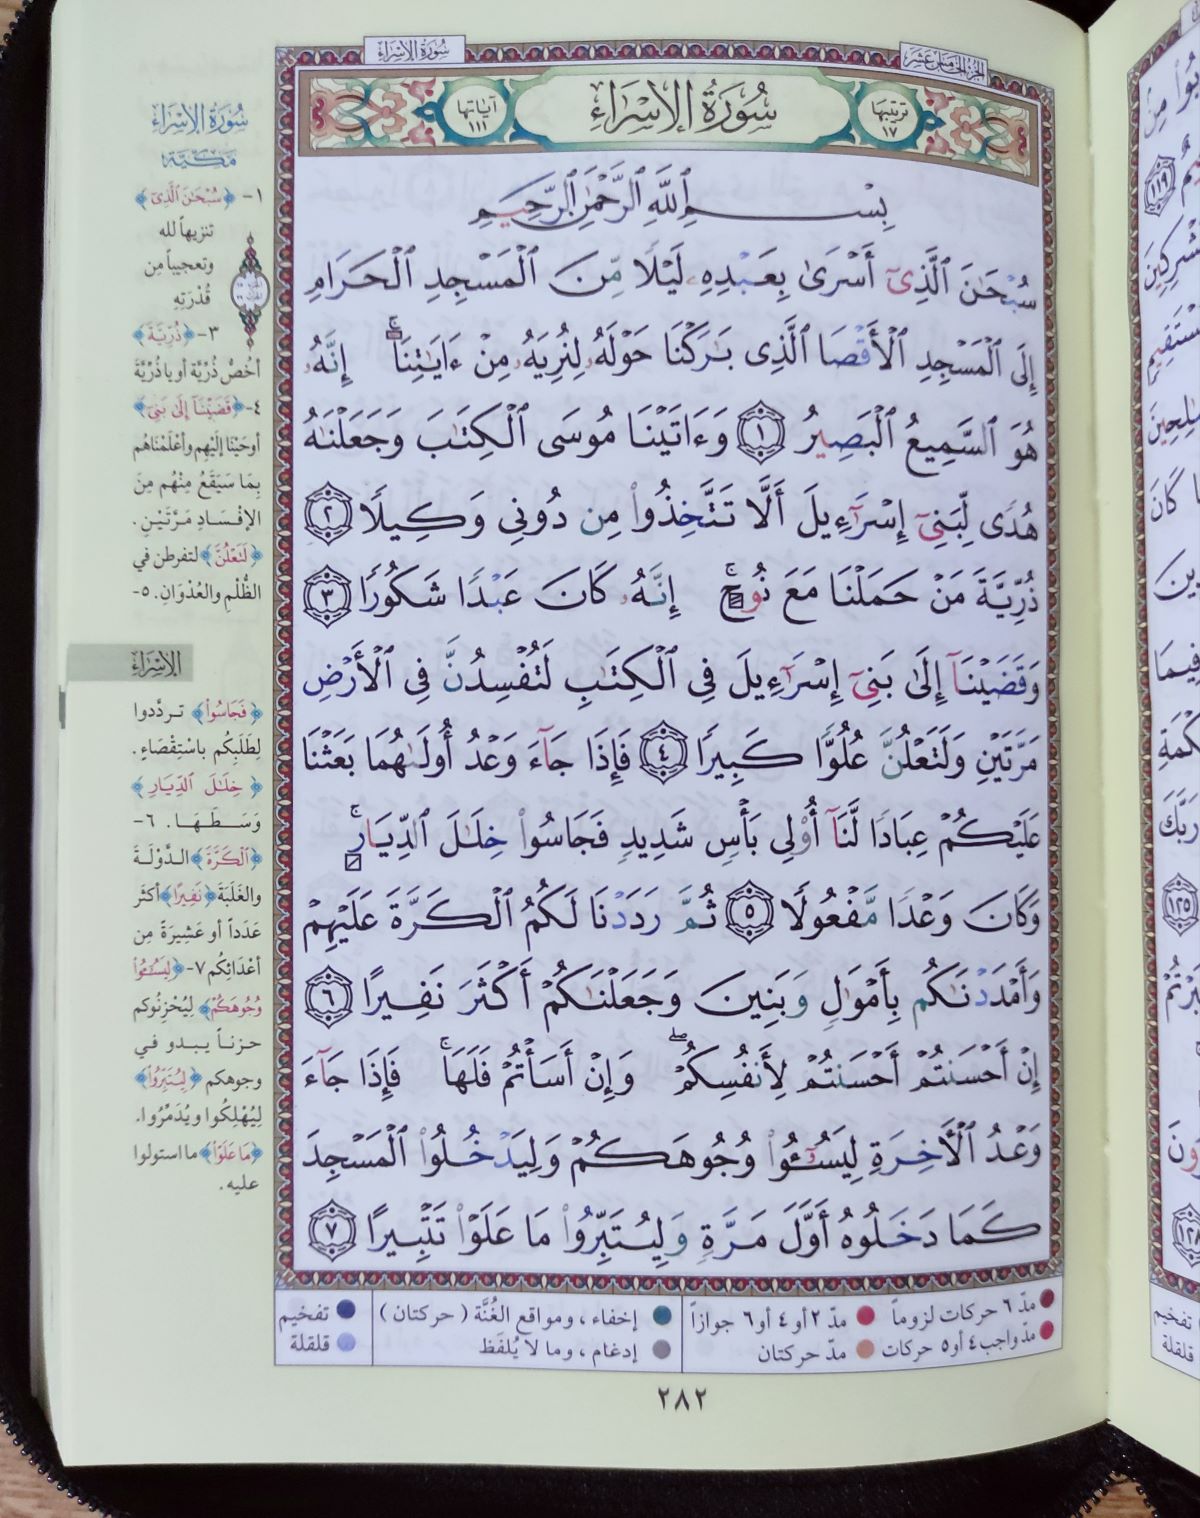 سُورَةُ الإِسْرَاءِ
الجزء الخامس عشر
ترتيبها ١٧
سُورَةُ الإِسْرَاءِ
آياتها ١١١
بِسْمِ ٱللَّهِ ٱلرَّحْمَٰنِ ٱلرَّحِيمِ
سُبْحَٰنَ ٱلَّذِىٓ أَسْرَىٰ بِعَبْدِهِۦ لَيْلًا مِّنَ ٱلْمَسْجِدِ ٱلْحَرَامِ
إِلَى ٱلْمَسْجِدِ ٱلْأَقْصَا ٱلَّذِى بَٰرَكْنَا حَوْلَهُۥ لِنُرِيَهُۥ مِنْ ءَايَٰتِنَآ ۚ إِنَّهُۥ
هُوَ ٱلسَّمِيعُ ٱلْبَصِيرُ ١ وَءَاتَيْنَا مُوسَى ٱلْكِتَٰبَ وَجَعَلْنَٰهُ
هُدًى لِّبَنِىٓ إِسْرَٰٓءِيلَ أَلَّا تَتَّخِذُوا۟ مِن دُونِى وَكِيلًا ٢
ذُرِّيَّةَ مَنْ حَمَلْنَا مَعَ نُوحٍ ۚ إِنَّهُۥ كَانَ عَبْدًا شَكُورًا ٣
وَقَضَيْنَآ إِلَىٰ بَنِىٓ إِسْرَٰٓءِيلَ فِى ٱلْكِتَٰبِ لَتُفْسِدُنَّ فِى ٱلْأَرْضِ
مَرَّتَيْنِ وَلَتَعْلُنَّ عُلُوًّا كَبِيرًا ٤ فَإِذَا جَآءَ وَعْدُ أُولَىٰهُمَا بَعَثْنَا
عَلَيْكُمْ عِبَادًا لَّنَآ أُو۟لِى بَأْسٍ شَدِيدٍ فَجَاسُوا۟ خِلَٰلَ ٱلدِّيَارِ ۚ
وَكَانَ وَعْدًا مَّفْعُولًا ٥ ثُمَّ رَدَدْنَا لَكُمُ ٱلْكَرَّةَ عَلَيْهِمْ
وَأَمْدَدْنَٰكُم بِأَمْوَٰلٍ وَبَنِينَ وَجَعَلْنَٰكُمْ أَكْثَرَ نَفِيرًا ٦
إِنْ أَحْسَنتُمْ أَحْسَنتُمْ لِأَنفُسِكُمْ ۖ وَإِنْ أَسَأْتُمْ فَلَهَا ۚ فَإِذَا جَآءَ
وَعْدُ ٱلْءَاخِرَةِ لِيَسُۥٓـُٔوا۟ وُجُوهَكُمْ وَلِيَدْخُلُوا۟ ٱلْمَسْجِدَ
كَمَا دَخَلُوهُ أَوَّلَ مَرَّةٍ وَلِيُتَبِّرُوا۟ مَا عَلَوْا۟ تَتْبِيرًا ٧
سُورَةُ الإِسْرَاءِ
مَكِّيَّة
١- ﴿سُبْحَٰنَ ٱلَّذِىٓ﴾
تنزيهاً لله
وتعجيباً مِن
قُدْرَتِهِ
٣- ﴿ذُرِّيَّةَ﴾
أخُصُّ ذُرِّيَّة أو يا ذُرِّيَّة
٤- ﴿قَضَيْنَآ إِلَىٰ بَنِىٓ﴾
أوحَيْنا إلَيْهِم وأعْلَمْناهُم
بِمَا سَيَقَعُ مِنْهُم مِنَ
الإفْسَادِ مَرَّتَيْنِ.
﴿لَتَعْلُنَّ﴾ لتفرطن في
الظُّلْمِ والعُدْوَانِ. ٥-
الإسراء
﴿فَجَاسُوا۟﴾ تردَّدوا
لِطَلَبِكُم باسْتِقْصَاءٍ.
﴿خِلَٰلَ ٱلدِّيَارِ﴾
وَسَطَهَا. ٦-
﴿ٱلْكَرَّةَ﴾ الدَّوْلَةَ
والغَلَبَةَ ﴿نَفِيرًا﴾ أكثَرَ
عَدَداً أو عَشِيرَةً مِن
أعْدَائِكُم ٧- ﴿لِيَسُۥٓـُٔوا۟
وُجُوهَكُمْ﴾ لِيُحْزِنُوكم
حزناً يبدو في
وجوهكم ﴿لِيُتَبِّرُوا۟﴾
لِيُهْلِكُوا ويُدَمِّرُوا.
﴿مَا عَلَوْا۟﴾ ما استولوا
عليه.
مدّ ٦ حركات لزوماً
مدّ ٢ أو ٤ أو ٦ جوازاً
إخفاء، ومواقع الغُنَّة (حركتان)
تفخيم
مدّ واجب ٤ أو ٥ حركات
مدّ حركتان
إدغام، وما لا يُلفَظ
قلقلة
٢٨٢